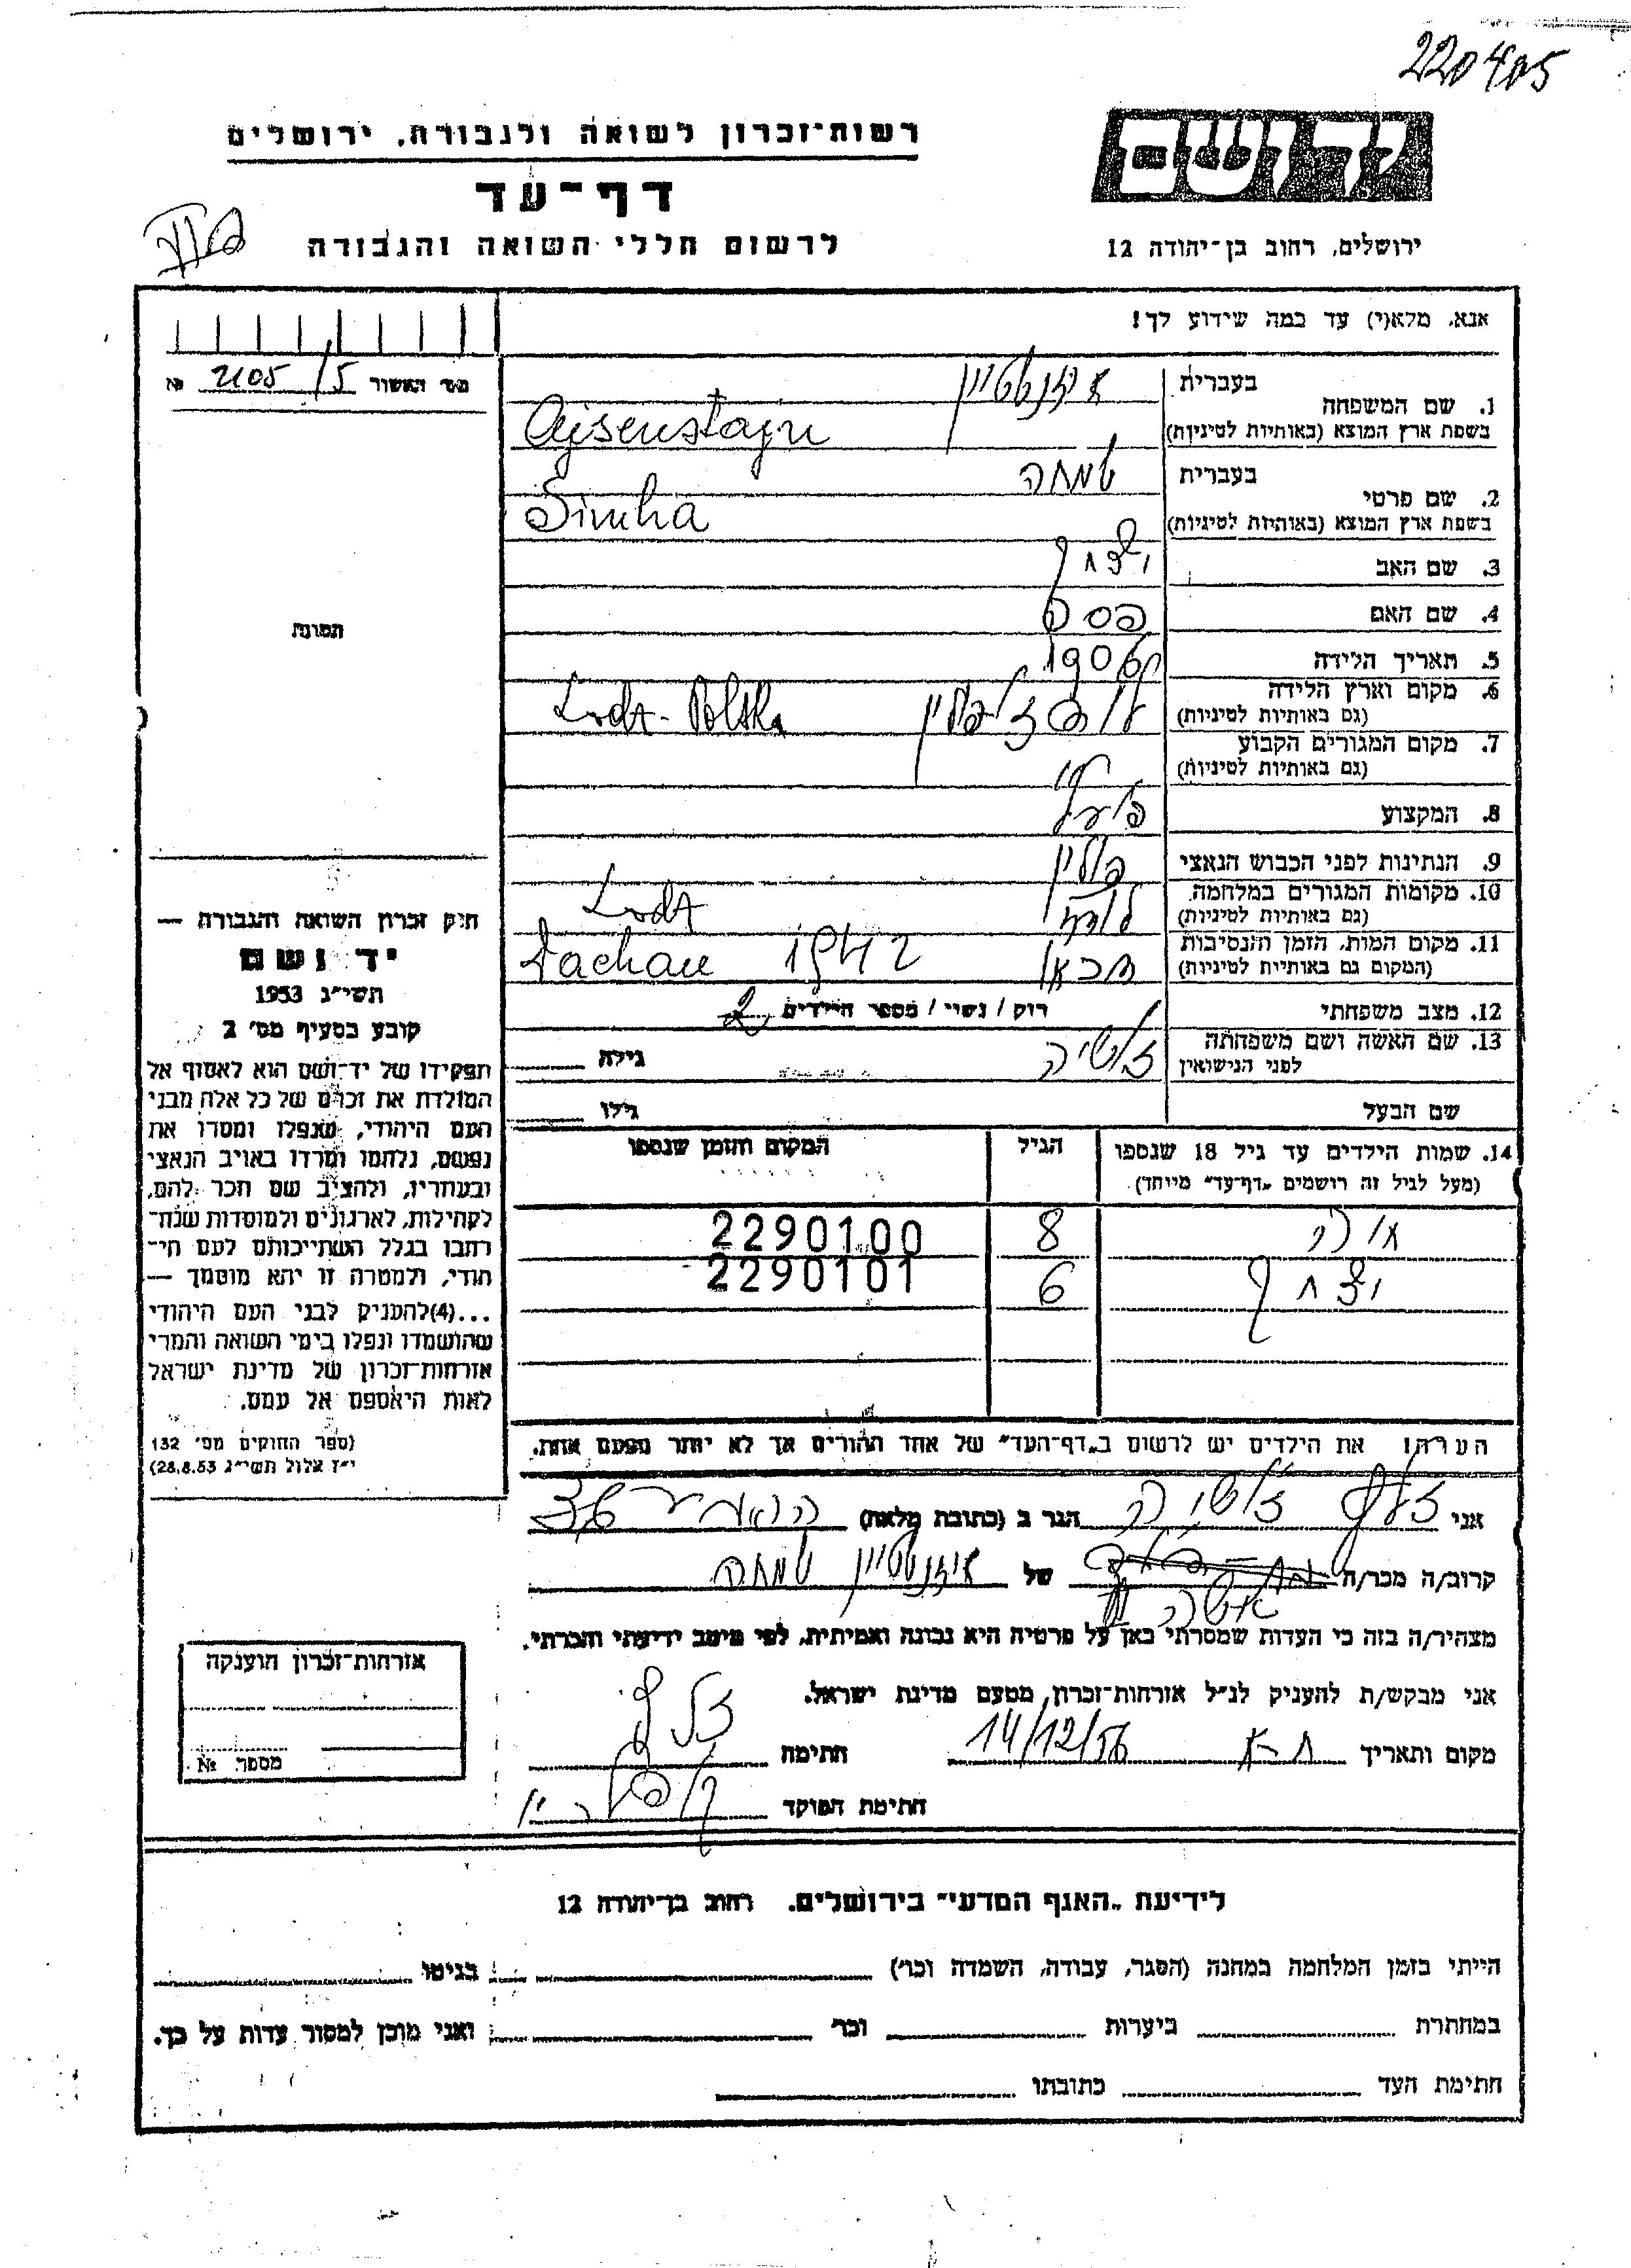 220405
יד ושם
רשות־זכרון לשואה ולגבורה, ירושלים
דף־עד
לרשום חללי השואה והגבורה
ירושלים, רחוב בן־יהודה 12
אנא, מלא(י) עד כמה שידוע לך!
מס' האשור 2105/5 №
1. שם המשפחה
בעברית איזנשטיין
בשפת ארץ המוצא (באותיות לטיניות) Ajsenstajn
2. שם פרטי
בעברית שמחה
בשפת ארץ המוצא (באותיות לטיניות) Simha
3. שם האב יצחק
4. שם האם פסה
5. תאריך הלידה 1906
6. מקום וארץ הלידה
(גם באותיות לטיניות) לודז פולין Lodz - Polska
7. מקום המגורים הקבוע
(גם באותיות לטיניות)
8. המקצוע פועל
9. הנתינות לפני הכבוש הנאצי פולין
10. מקומות המגורים במלחמה
(גם באותיות לטיניות) לודז Lodz
11. מקום המות, הזמן והנסיבות
(המקום גם באותיות לטיניות) דכאו 1942 Dachau
12. מצב משפחתי רוק / נשוי / מספר הילדים 2
13. שם האשה ושם משפחתה
לפני הנישואין גילה
שם הבעל גילו
14. שמות הילדים עד גיל 18 שנספו
(מעל לגיל זה רושמים "דף־עד" מיוחד)
הגיל
המקום והזמן שנספו
8 2290100
יצחק 6 2290101
הערה! את הילדים יש לרשום ב"דף־העד" של אחד ההורים אך לא יותר מפעם אחת.
תמונה
חוק זכרון השואה והגבורה —
יד ושם
תשי"ג 1953
קובע בסעיף מס' 2
תפקידו של יד־ושם הוא לאסוף אל
המולדת את זכרם של כל אלה מבני
העם היהודי, שנפלו ומסרו את
נפשם, נלחמו ומרדו באויב הנאצי
ובעוזריו, ולהציב שם וזכר להם,
לקהילות, לארגונים ולמוסדות שנח־
רבו בגלל השתייכותם לעם הי־
הודי, ולמטרה זו יהא מוסמך —
...(4)להעניק לבני העם היהודי
שהושמדו ונפלו בימי השואה והמרי
אזרחות־זכרון של מדינת ישראל
לאות היאספם אל עמם.
(ספר החוקים מס' 132
י"ז אלול תשי"ג 28.8.53)
אני הגר ב (כתובת מלאה)
קרוב/ה מכר/ה של איזנשטיין שמחה
אשה
מצהיר/ה בזה כי העדות שמסרתי כאן על פרטיה היא נכונה ואמיתית, לפי מיטב ידיעתי והכרתי.
אני מבקש/ת להעניק לנ"ל אזרחות־זכרון, מטעם מדינת ישראל.
מקום ותאריך ת־א 14/12/56 חתימה
חתימת הפוקד
אזרחות־זכרון הוענקה
מספר №
לידיעת "האגף המדעי" בירושלים, רחוב בן־יהודה 12
הייתי בזמן המלחמה במחנה (הסגר, עבודה, השמדה וכו') בגיטו
במחתרת ביערות וכו' ואני מוכן למסור עדות על כך.
חתימת העד כתובתו